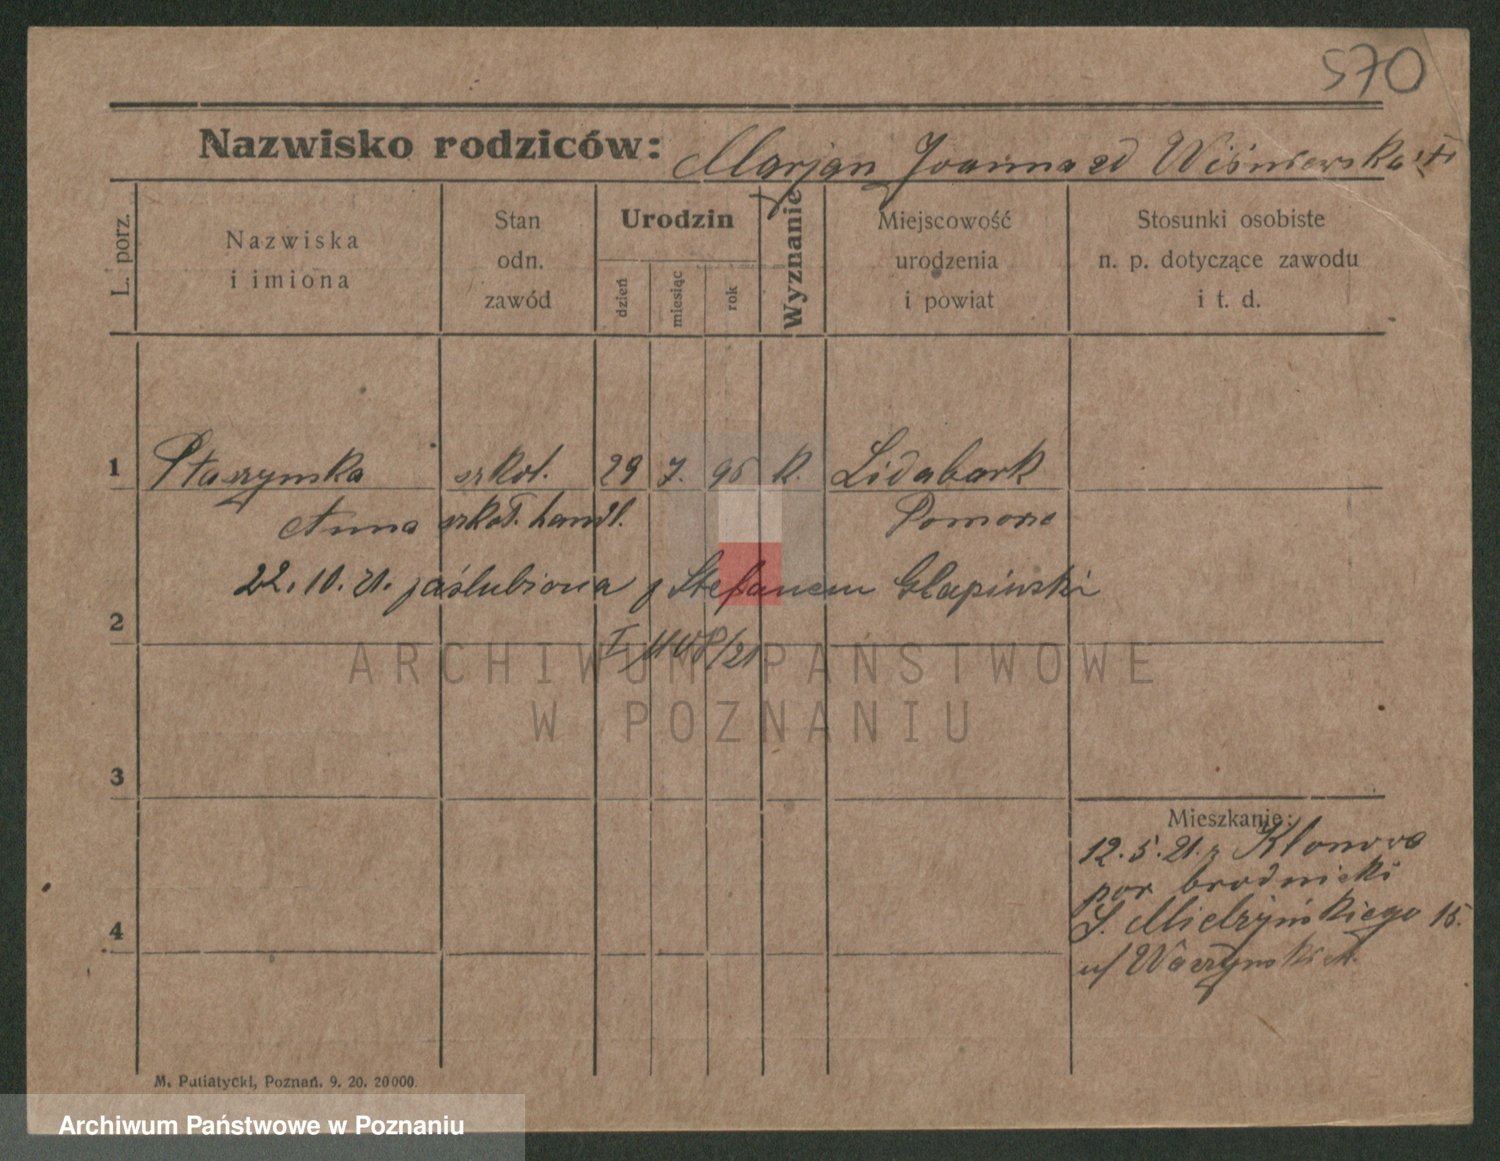 570
Nazwisko rodziców: Marjan Joanna zd Wiśniewska
L. porz.
Nazwiska
i imiona
Stan
odn.
zawód
Urodzin
dzień
miesiąc
rok
Wyznanie
Miejscowość
urodzenia
i powiat
Stosunki osobiste
n. p. dotyczące zawodu
i t. d.
1 Staszynska szkol. 29 7. 96 k. Lidabark
Anna szkoł. handl. Pomorze
22.10.21. zaślubiona z Stefanem Glapinski
2
21
3
Mieszkanie:
12.5.21. z Klonowo
pow brodnicki
S. Mielzyńskiego 15.
4
u/
M. Putiatycki, Poznań. 9. 20. 20000.
ARCHIWUM PAŃSTWOWE
W POZNANIU
Archiwum Państwowe w Poznaniu